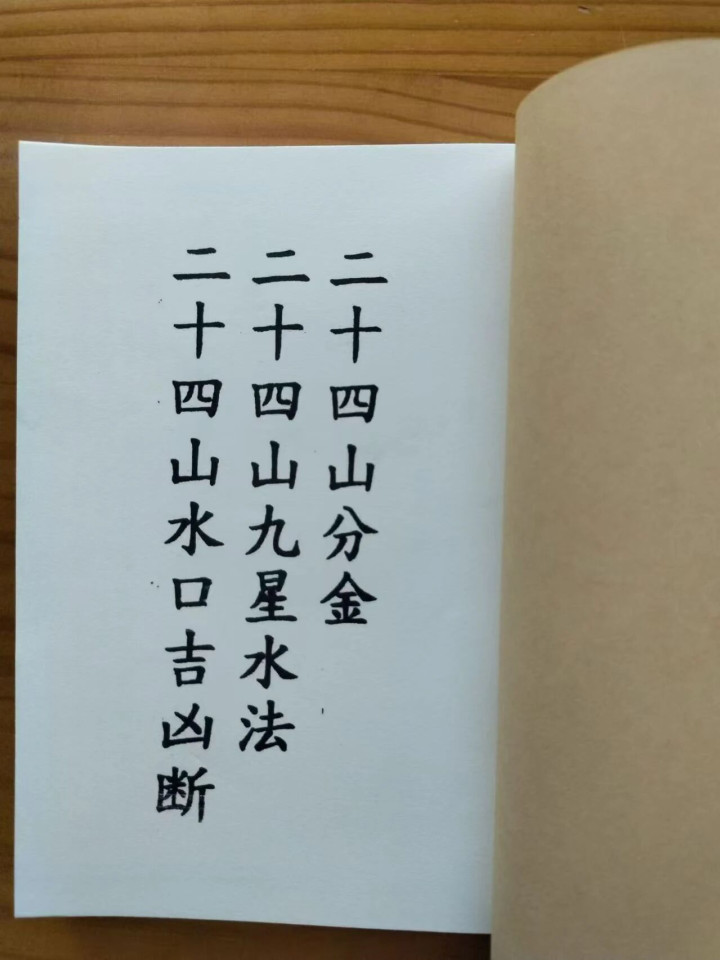 二十四山分金
二十四山九星水法
二十四山水口吉凶断